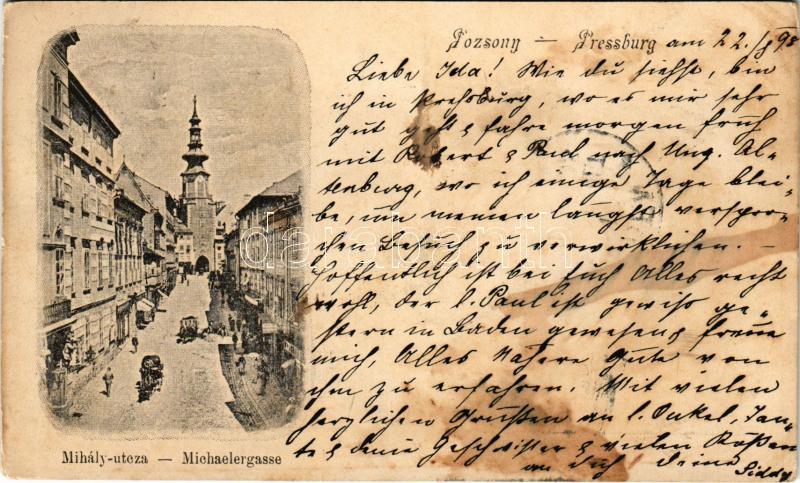 Pozsony — Pressburg am 22./8 98
Liebe Ida! Wie du siehst, bin
ich in Pressburg, wo es mir sehr
gut geht & fahre morgen früh
mit Robert & Paul nach Ung. Al-
tenburg, wo ich einige Tage blei-
be, um meinen längst verspro-
chen Besuch zu verwirklichen. —
Hoffentlich ist bei Euch Alles recht
wohl, der l. Paul ist gewiss ge-
stern in Baden gewesen & freue
mich, Alles Nähere Gute von
ihm zu erfahren. Mit vielen
herzlichen Grüßen an l. Onkel, Tan-
te & deine Geschwister & vielen Küßen
an dich deine
Siddy
Mihály-utcza — Michaelergasse
darabanth